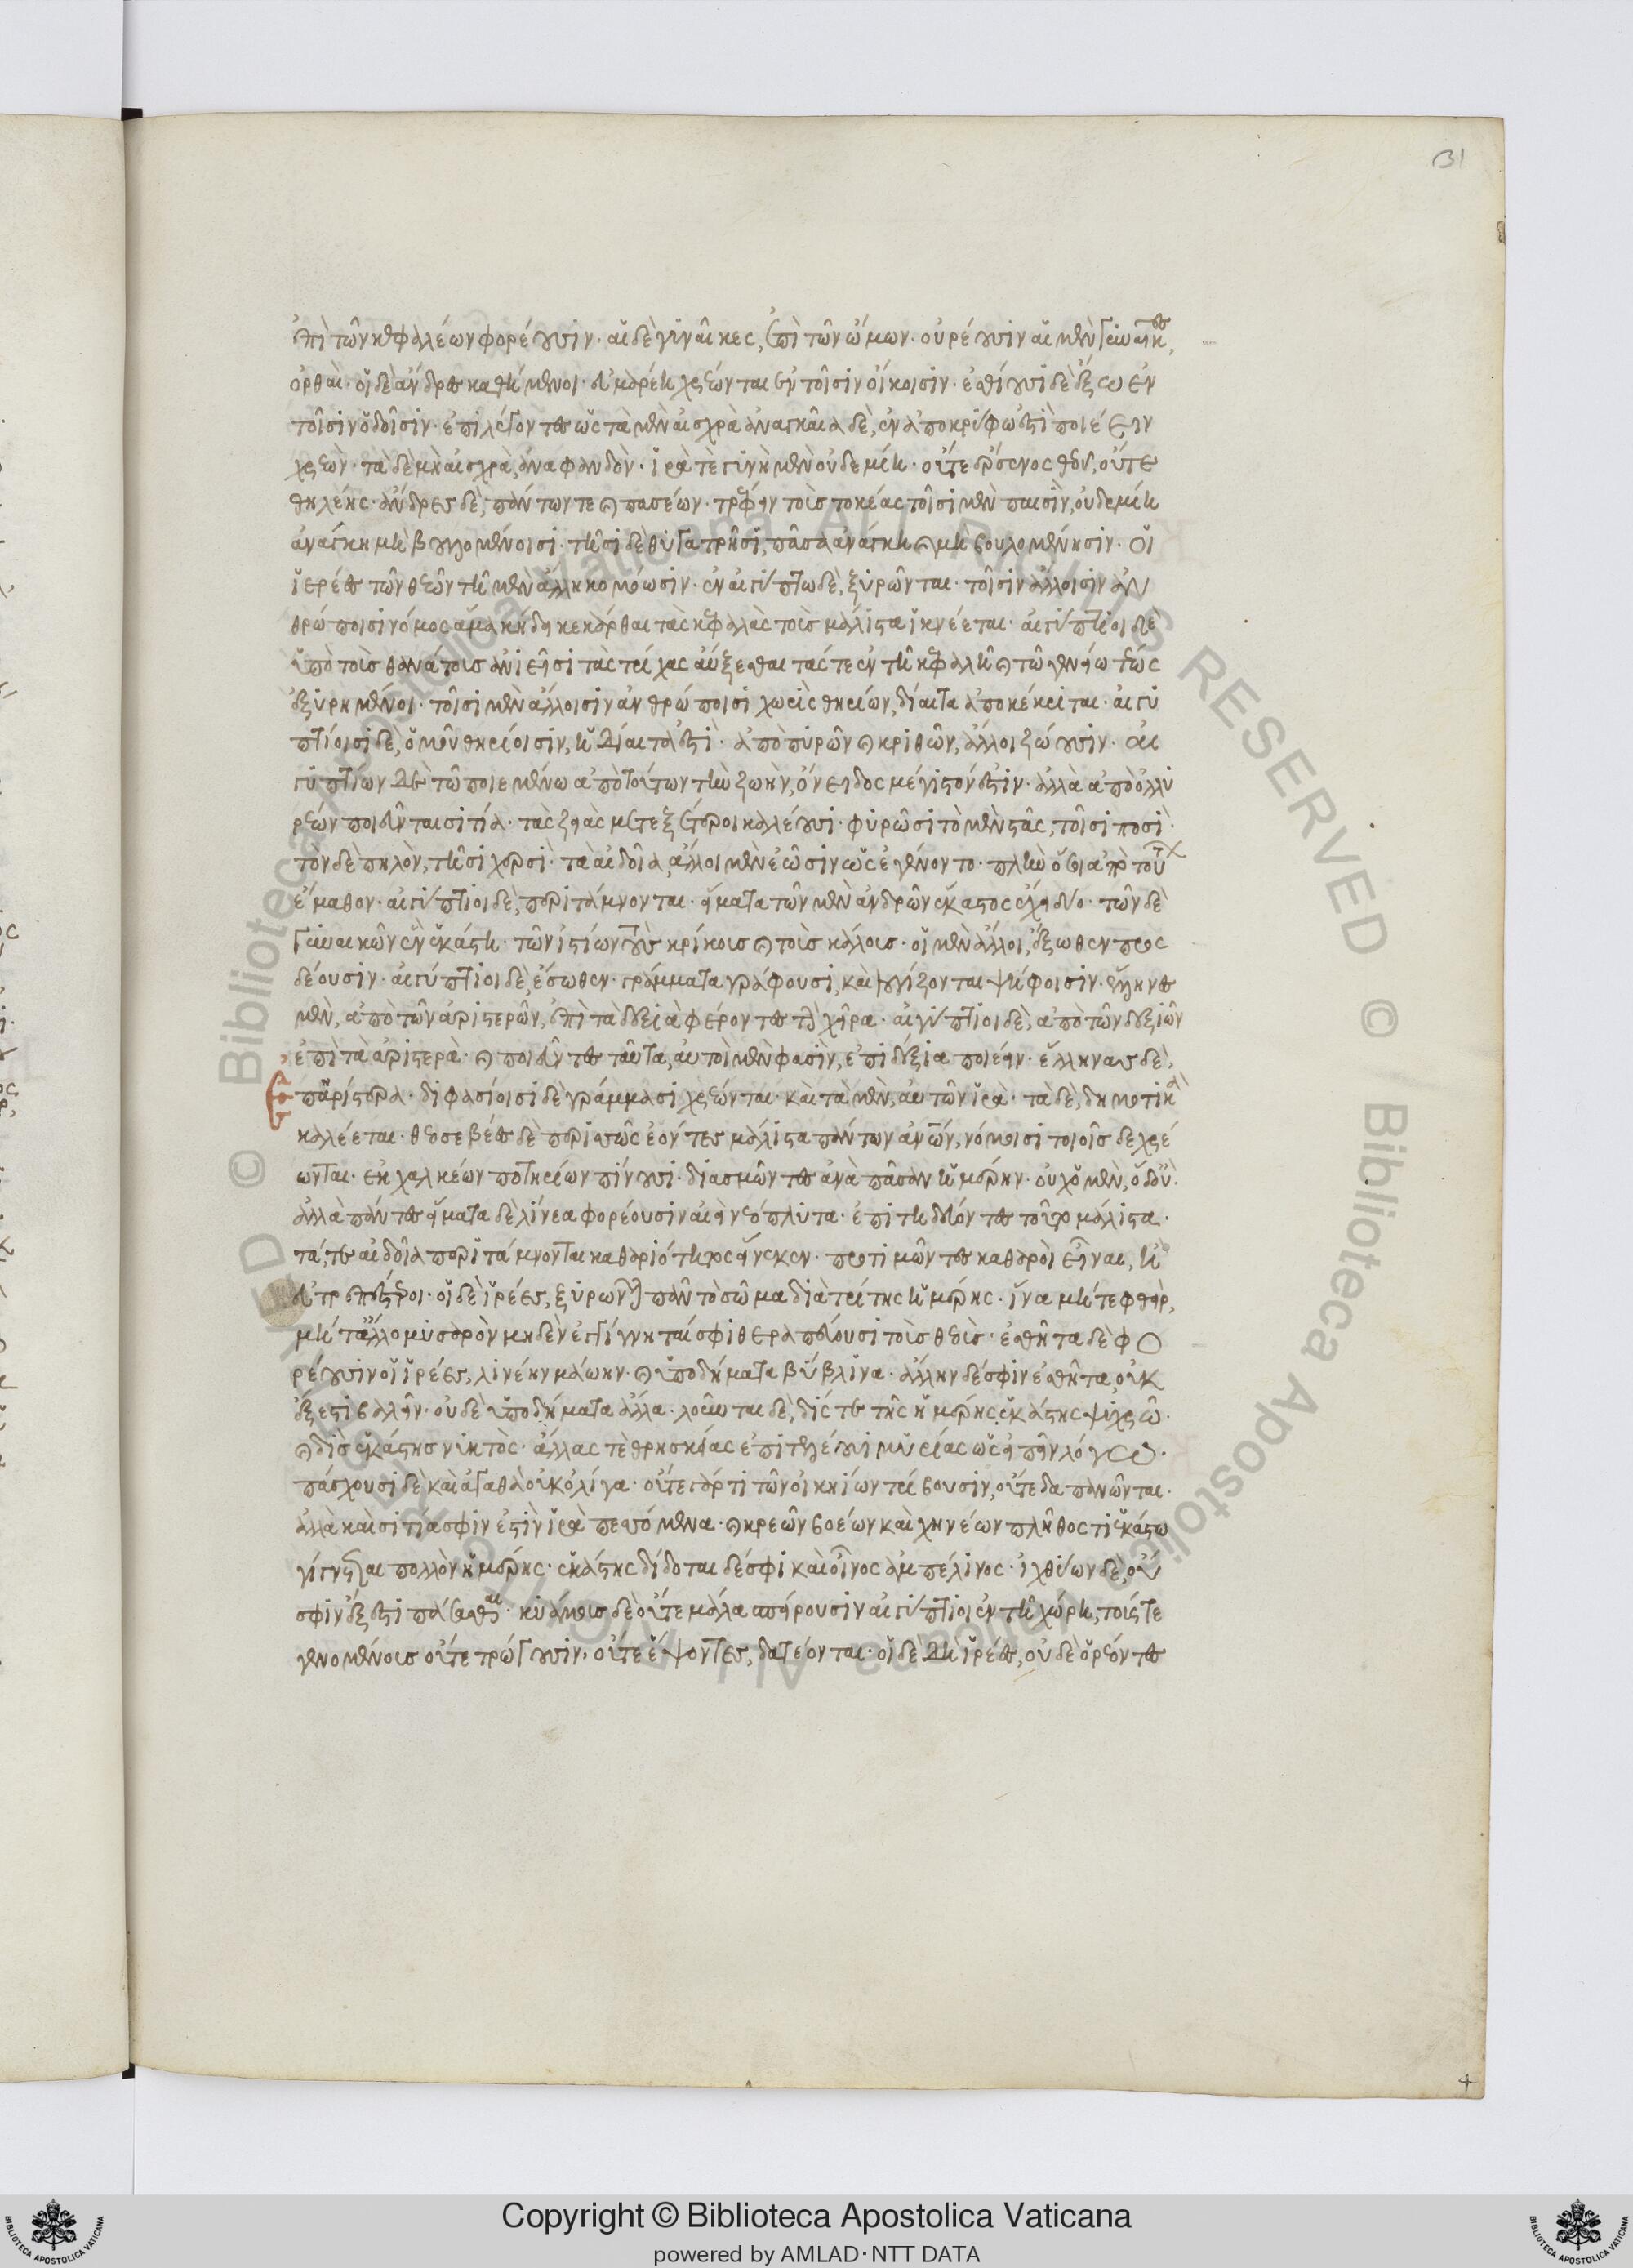 131
ἐπὶ τῶν κεφαλέων φορέουσιν· αἱ δὲ γυναῖκες, ἐπὶ τῶν ὤμων· οὐρέουσιν αἱ μὲν γυναῖκες,
ὀρθαὶ· οἱ δὲ ἄνδρες κατήμενοι· εὐμαρέῃ χρέωνται ἐν τοῖσιν οἴκοισιν· ἐσθίουσι δὲ ἔξω ἐν
τοῖσιν ὁδοῖσιν· ἐπιλέγοντες ὡς τὰ μὲν αἰσχρὰ ἀναγκαῖα δὲ, ἐν ἀποκρύφω ἐστὶ ποιέειν
χρεὼν· τὰ δὲ μὴ αἰσχρὰ, ἀναφανδὸν· ἱρᾶται γυνὴ μὲν οὐδεμίη· οὔτε ἔρσενος θεοῦ, οὔτε
θηλέης· ἄνδρες δὲ, πάντων τε καὶ πασέων· τρέφειν τοὺς τοκέας τοῖσι μὲν παισὶν, οὐδεμίη
ἀνάγκη μὴ βουλομένοισι· τῆσι δὲ θυγατρῆσι, πᾶσα ἀνάγκη καὶ μὴ βουλομένησιν· οἱ
ἱερέες τῶν θεῶν τῇ μὲν ἄλλῃ κομέωσιν· ἐν αἰγύπτω δὲ, ξυρῶνται· τοῖσιν ἄλλοισιν ἀν
θρώποισι νόμος ἅμα κήδη κεκάρθαι τὰς κεφαλὰς τοὺς μάλιστα ἱκνέεται· αἰγύπτιοι δὲ
ὑπὸ τοὺς θανάτους ἀνιεῖσι τὰς τρίχας αὔξεσθαι τάς τε ἐν τῇ κεφαλῇ καὶ τῶ γενείω τέως
ἐξυρημένοι· τοῖσι μὲν ἄλλοισιν ἀνθρώποισι χωρὶς θηρίων, δίαιτα ἀποκέκριται· αἰγυ
πτίοισι δὲ, ὁμοῦ θηρίοισιν, ἡ δίαιτα ἐστὶ· ἀπὸ πυρῶν καὶ κριθῶν, ἄλλοι ζώουσιν· αἰ
γυπτίων δὲ τῶ ποιεμένω ἀπὸ τούτων τὴν ζωὴν, ὄνειδος μέγιστόν ἐστιν· ἀλλὰ ἀπὸ ὀλυ
ρέων ποιεῦνται σιτία· τὰς ζειὰς μετεξέτεροι καλέουσι· φυρῶσι τὸ μὲν σταῖς, τοῖσι ποσὶ·
τὸν δὲ πηλὸν, τῆσι χερσὶ· τὰ αἰδοῖα, ἄλλοι μὲν ἐῶσιν ὡς ἐγένοντο· πλὴν ὅσοι ἀπὸ τούτων
ἔμαθον· αἰγύπτιοι δὲ, περιτάμνονται· εἵματα τῶν μὲν ἀνδρῶν ἕκαστος ἔχει δύο· τῶν δὲ
γυναικῶν ἓν ἑκάστη· τῶν ἱστίων τοὺς κρίκους καὶ τοὺς κάλους· οἱ μὲν ἄλλοι, ἔξωθεν προς
δέουσιν· αἰγύπτιοι δὲ, ἔσωθεν· γράμματα γράφουσι, καὶ λογίζονται ψήφοισιν· ἕλληνες
μὲν, ἀπὸ τῶν ἀριστερῶν, ἐπὶ τὰ δεξιὰ φέροντες τὴν χεῖρα· αἰγύπτιοι δὲ, ἀπὸ τῶν δεξιῶν
ἐπὶ τὰ ἀριστερὰ· καὶ ποιεῦντες ταῦτα, αὐτοὶ μὲν φασὶν, ἐπιδέξια ποιέειν· ἕλληνας δὲ,
ἐπαρίστερα· διφασίοισι δὲ γράμμασι χρέωνται· καὶ τὰ μὲν, αὐτῶν ἱρὰ· τὰ δὲ, δημοτικὰ
καλέεται· θεοσεβέες δὲ περισσῶς ἐόντες μάλιστα πάντων ἀνθρώπων, νόμοισι τοιοῖσδε χρέ
ωνται· ἐκ χαλκέων ποτηρίων πίνουσι· διασμῶντες ἀνὰ πᾶσαν ἡμέρην· οὐχ ὁ μὲν, ὁ δ' οὔ·
ἀλλὰ πάντες εἵματα δὲ λίνεα φορέουσιν αἰεὶ νεόπλυτα· ἐπιτηδεύοντες τοῦτο μάλιστα·
τά, τε αἰδοῖα περιτάμνονται καθαριότητος εἵνεκεν· προτιμῶντες καθαροὶ εἶναι, ἢ
εὐπρεπέστεροι· οἱ δὲ ἱρέες, ξυρῶνται πᾶν τὸ σῶμα διὰ τρίτης ἡμέρης· ἵνα μήτε φθεὶρ,
μήτ' ἄλλο μυσαρὸν μηδὲν ἐγγίνηταί σφι θεραπεύουσι τοὺς θεοὺς· ἐσθῆτα δὲ φο
ρέουσιν οἱ ἱρέες, λινέην μούνην· καὶ ὑποδήματα βύβλινα· ἄλλην δέ σφιν ἐσθῆτα, οὐκ
ἔξεστι λαβεῖν· οὐδὲ ὑποδήματα ἄλλα· λοῦνται δὲ, δίς τε τῆς ἡμέρης ἑκάστης ψυχρῶ·
καὶ δὶς ἑκάστης νυκτὸς· ἄλλας τε θρησκίας ἐπιτελέουσι μυρίας ὡς εἰπεῖν λόγω·
πάσχουσι δὲ καὶ ἀγαθὰ οὐκ ὀλίγα· οὔτε γάρ τι τῶν οἰκηίων τρίβουσιν, οὔτε δαπανῶνται·
ἀλλὰ καὶ σιτία σφίν ἐστιν ἱρὰ πεσσόμενα· καὶ κρεῶν βοέων καὶ χηνέων πλῆθός τι ἑκάστω
γίγνεται πολλὸν ἡμέρης· ἑκάστης δίδοται δέ σφι καὶ οἶνος ἀμπέλινος· ἰχθύων δὲ, οὔ
σφιν ἔξεστι πάσασθαι· κυάμους δὲ οὔτε μάλα σπείρουσιν αἰγύπτιοι ἐν τῇ χώρῃ, τούς τε
γενομένους οὔτε τρώγουσιν· οὔτε ἕψοντες, δατέονται· οἱ δὲ δὴ ἱρέες, οὐδὲ ὁρέοντες